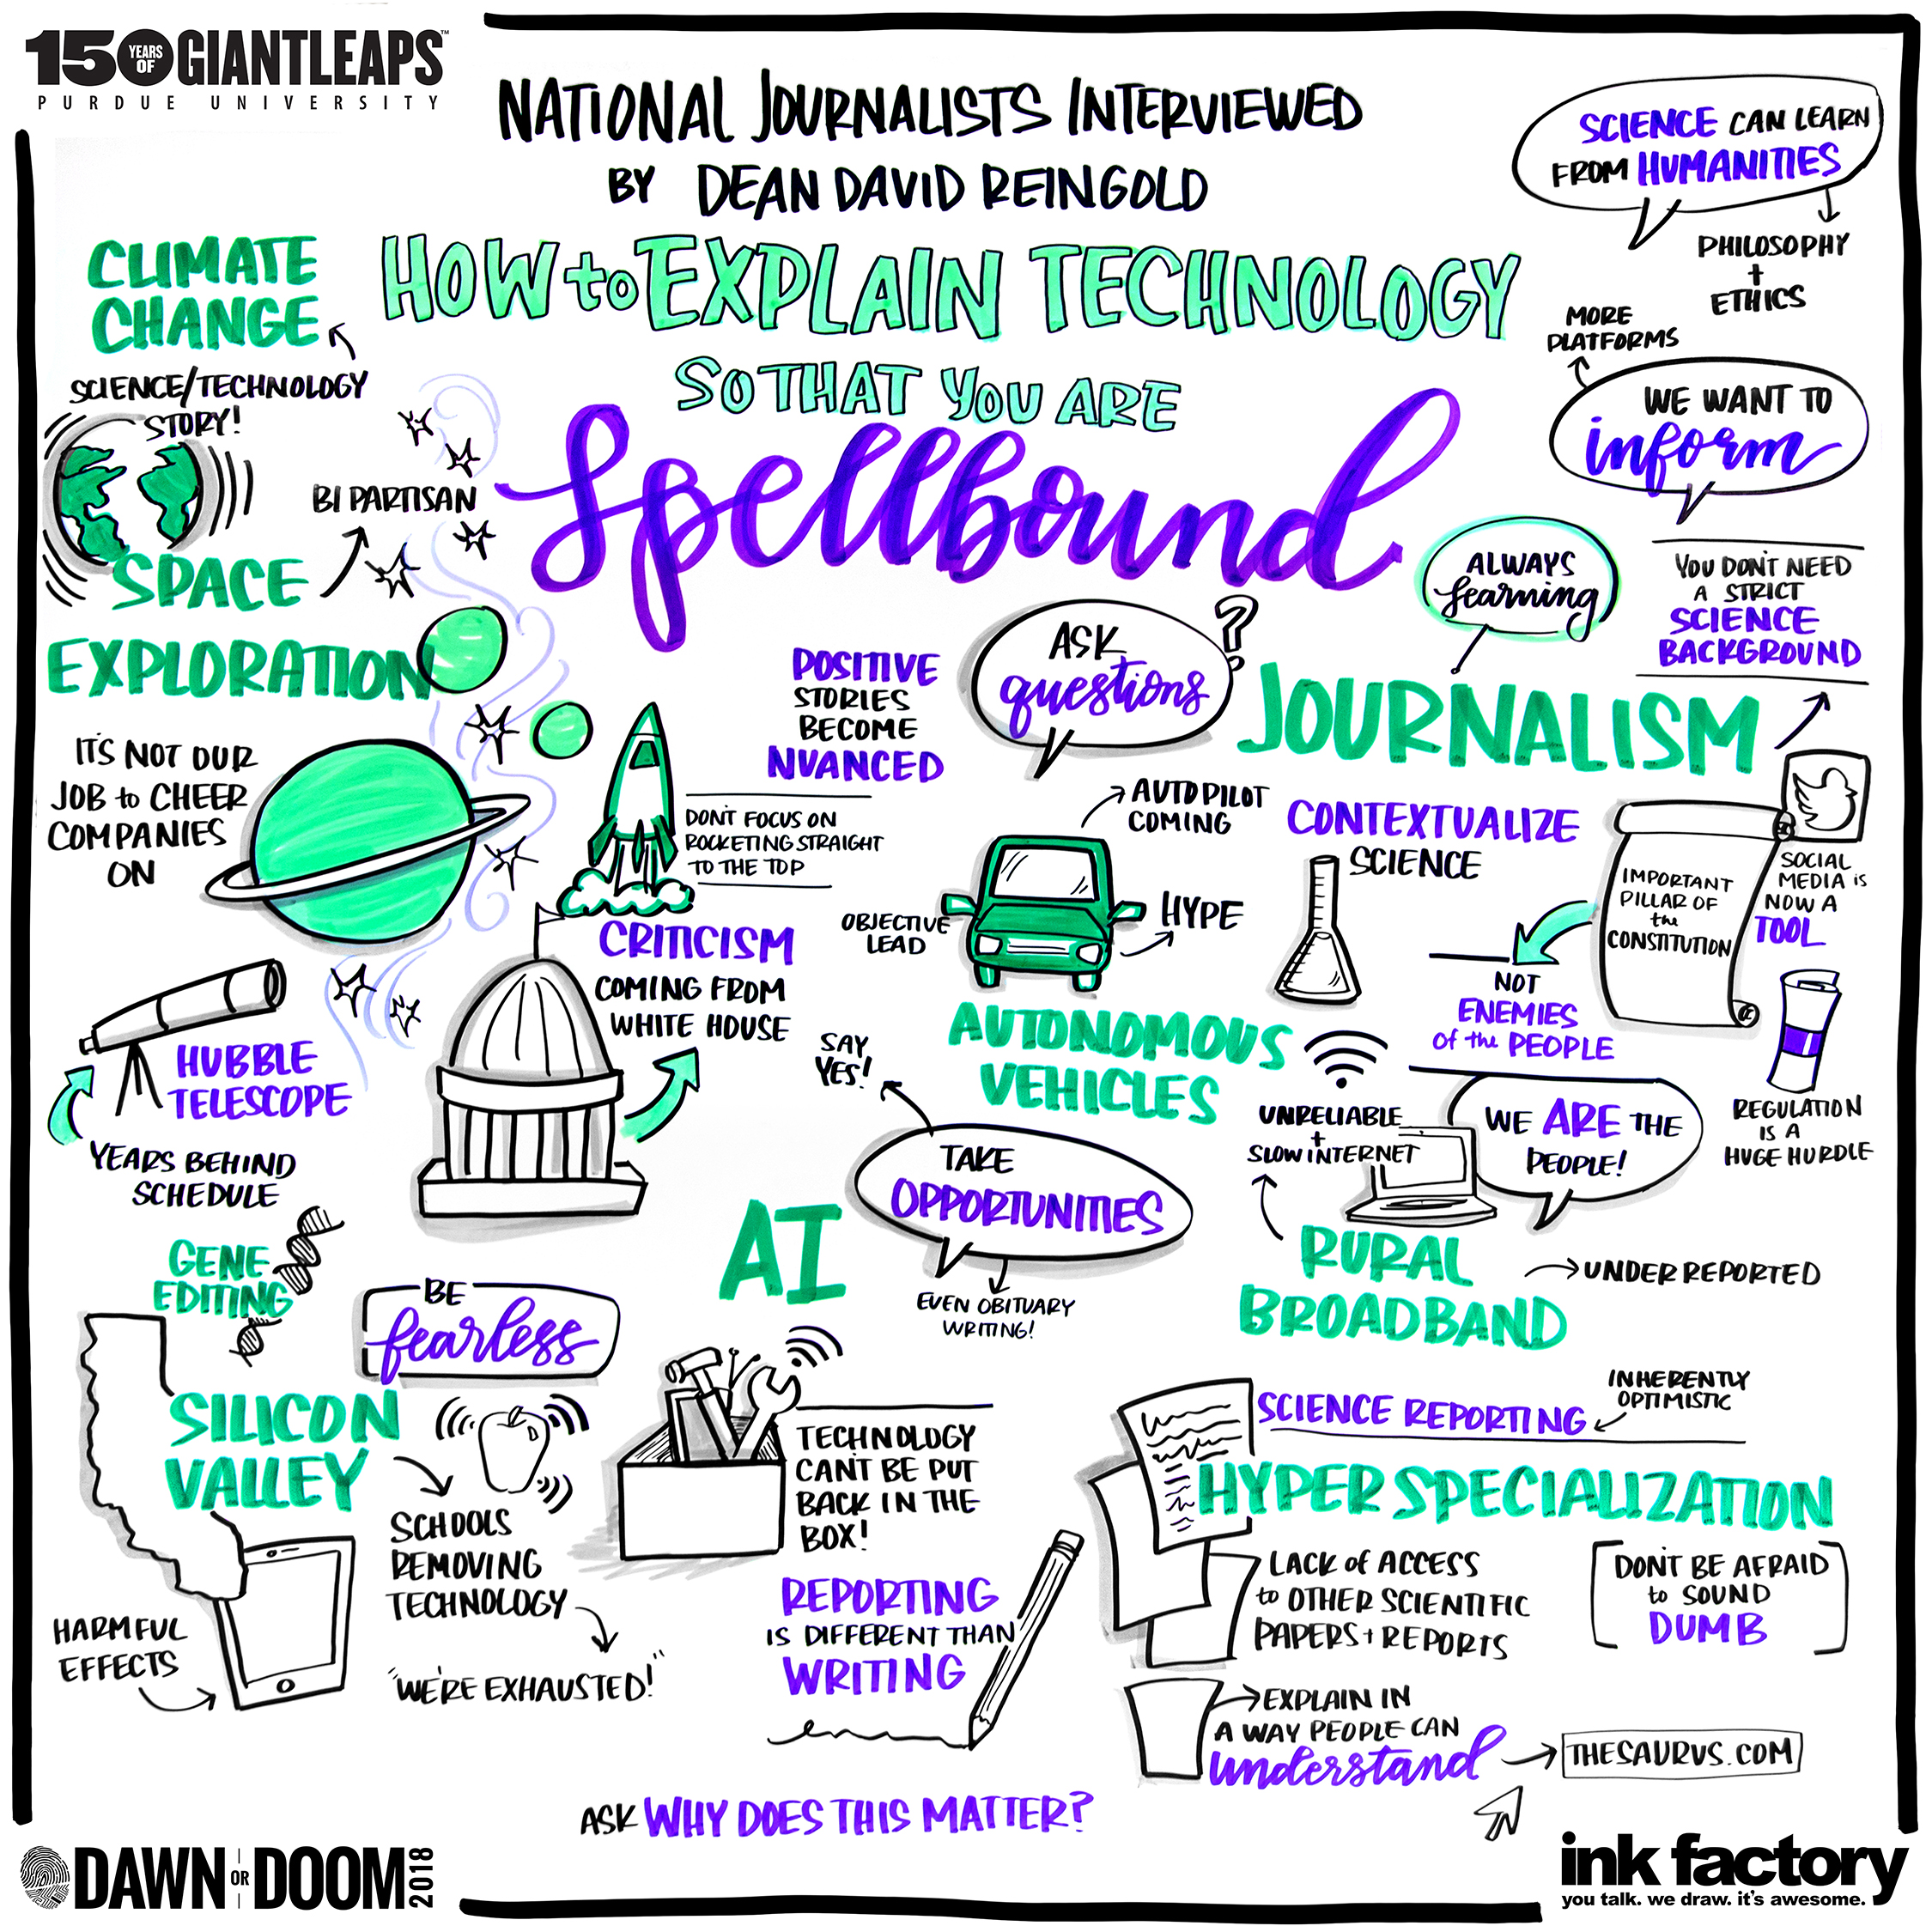 150 YEARS OF GIANTLEAPS™
PURDUE UNIVERSITY
NATIONAL JOURNALISTS INTERVIEWED
BY DEAN DAVID REINGOLD
HOW to EXPLAIN TECHNOLOGY
SO THAT YOU ARE
Spellbound
SCIENCE CAN LEARN
FROM HUMANITIES
PHILOSOPHY
+
ETHICS
MORE
PLATFORMS
WE WANT TO
inform
CLIMATE
CHANGE
SCIENCE/TECHNOLOGY
STORY!
BIPARTISAN
SPACE
EXPLORATION
IT'S NOT OUR
JOB to CHEER
COMPANIES
ON
DON'T FOCUS ON
ROCKETING STRAIGHT
TO THE TOP
POSITIVE
STORIES
BECOME
NUANCED
CRITICISM
COMING FROM
WHITE HOUSE
HUBBLE
TELESCOPE
YEARS BEHIND
SCHEDULE
ASK
questions
?
ALWAYS
learning
YOU DON'T NEED
A STRICT
SCIENCE
BACKGROUND
JOURNALISM
AUTOPILOT
COMING
OBJECTIVE
LEAD
HYPE
AUTONOMOUS
VEHICLES
CONTEXTUALIZE
SCIENCE
IMPORTANT
PILLAR OF
the
CONSTITUTION
SOCIAL
MEDIA is
NOW A
TOOL
NOT
ENEMIES
of the PEOPLE
WE ARE THE
PEOPLE!
REGULATION
IS A
HUGE HURDLE
UNRELIABLE
+
SLOW INTERNET
RURAL
BROADBAND
UNDER REPORTED
SAY
YES!
TAKE
OPPORTUNITIES
EVEN OBITUARY
WRITING!
AI
TECHNOLOGY
CAN'T BE PUT
BACK IN THE
BOX!
GENE
EDITING
BE
fearless
SILICON
VALLEY
HARMFUL
EFFECTS
SCHOOLS
REMOVING
TECHNOLOGY
"WE'RE EXHAUSTED!"
REPORTING
IS DIFFERENT THAN
WRITING
SCIENCE REPORTING
INHERENTLY
OPTIMISTIC
HYPER SPECIALIZATION
LACK of ACCESS
to OTHER SCIENTIFIC
PAPERS + REPORTS
DON'T BE AFRAID
to SOUND
DUMB
EXPLAIN IN
A WAY PEOPLE CAN
understand
THESAURUS.COM
ASK WHY DOES THIS MATTER?
DAWN OR DOOM 2018
ink factory
you talk. we draw. it's awesome.